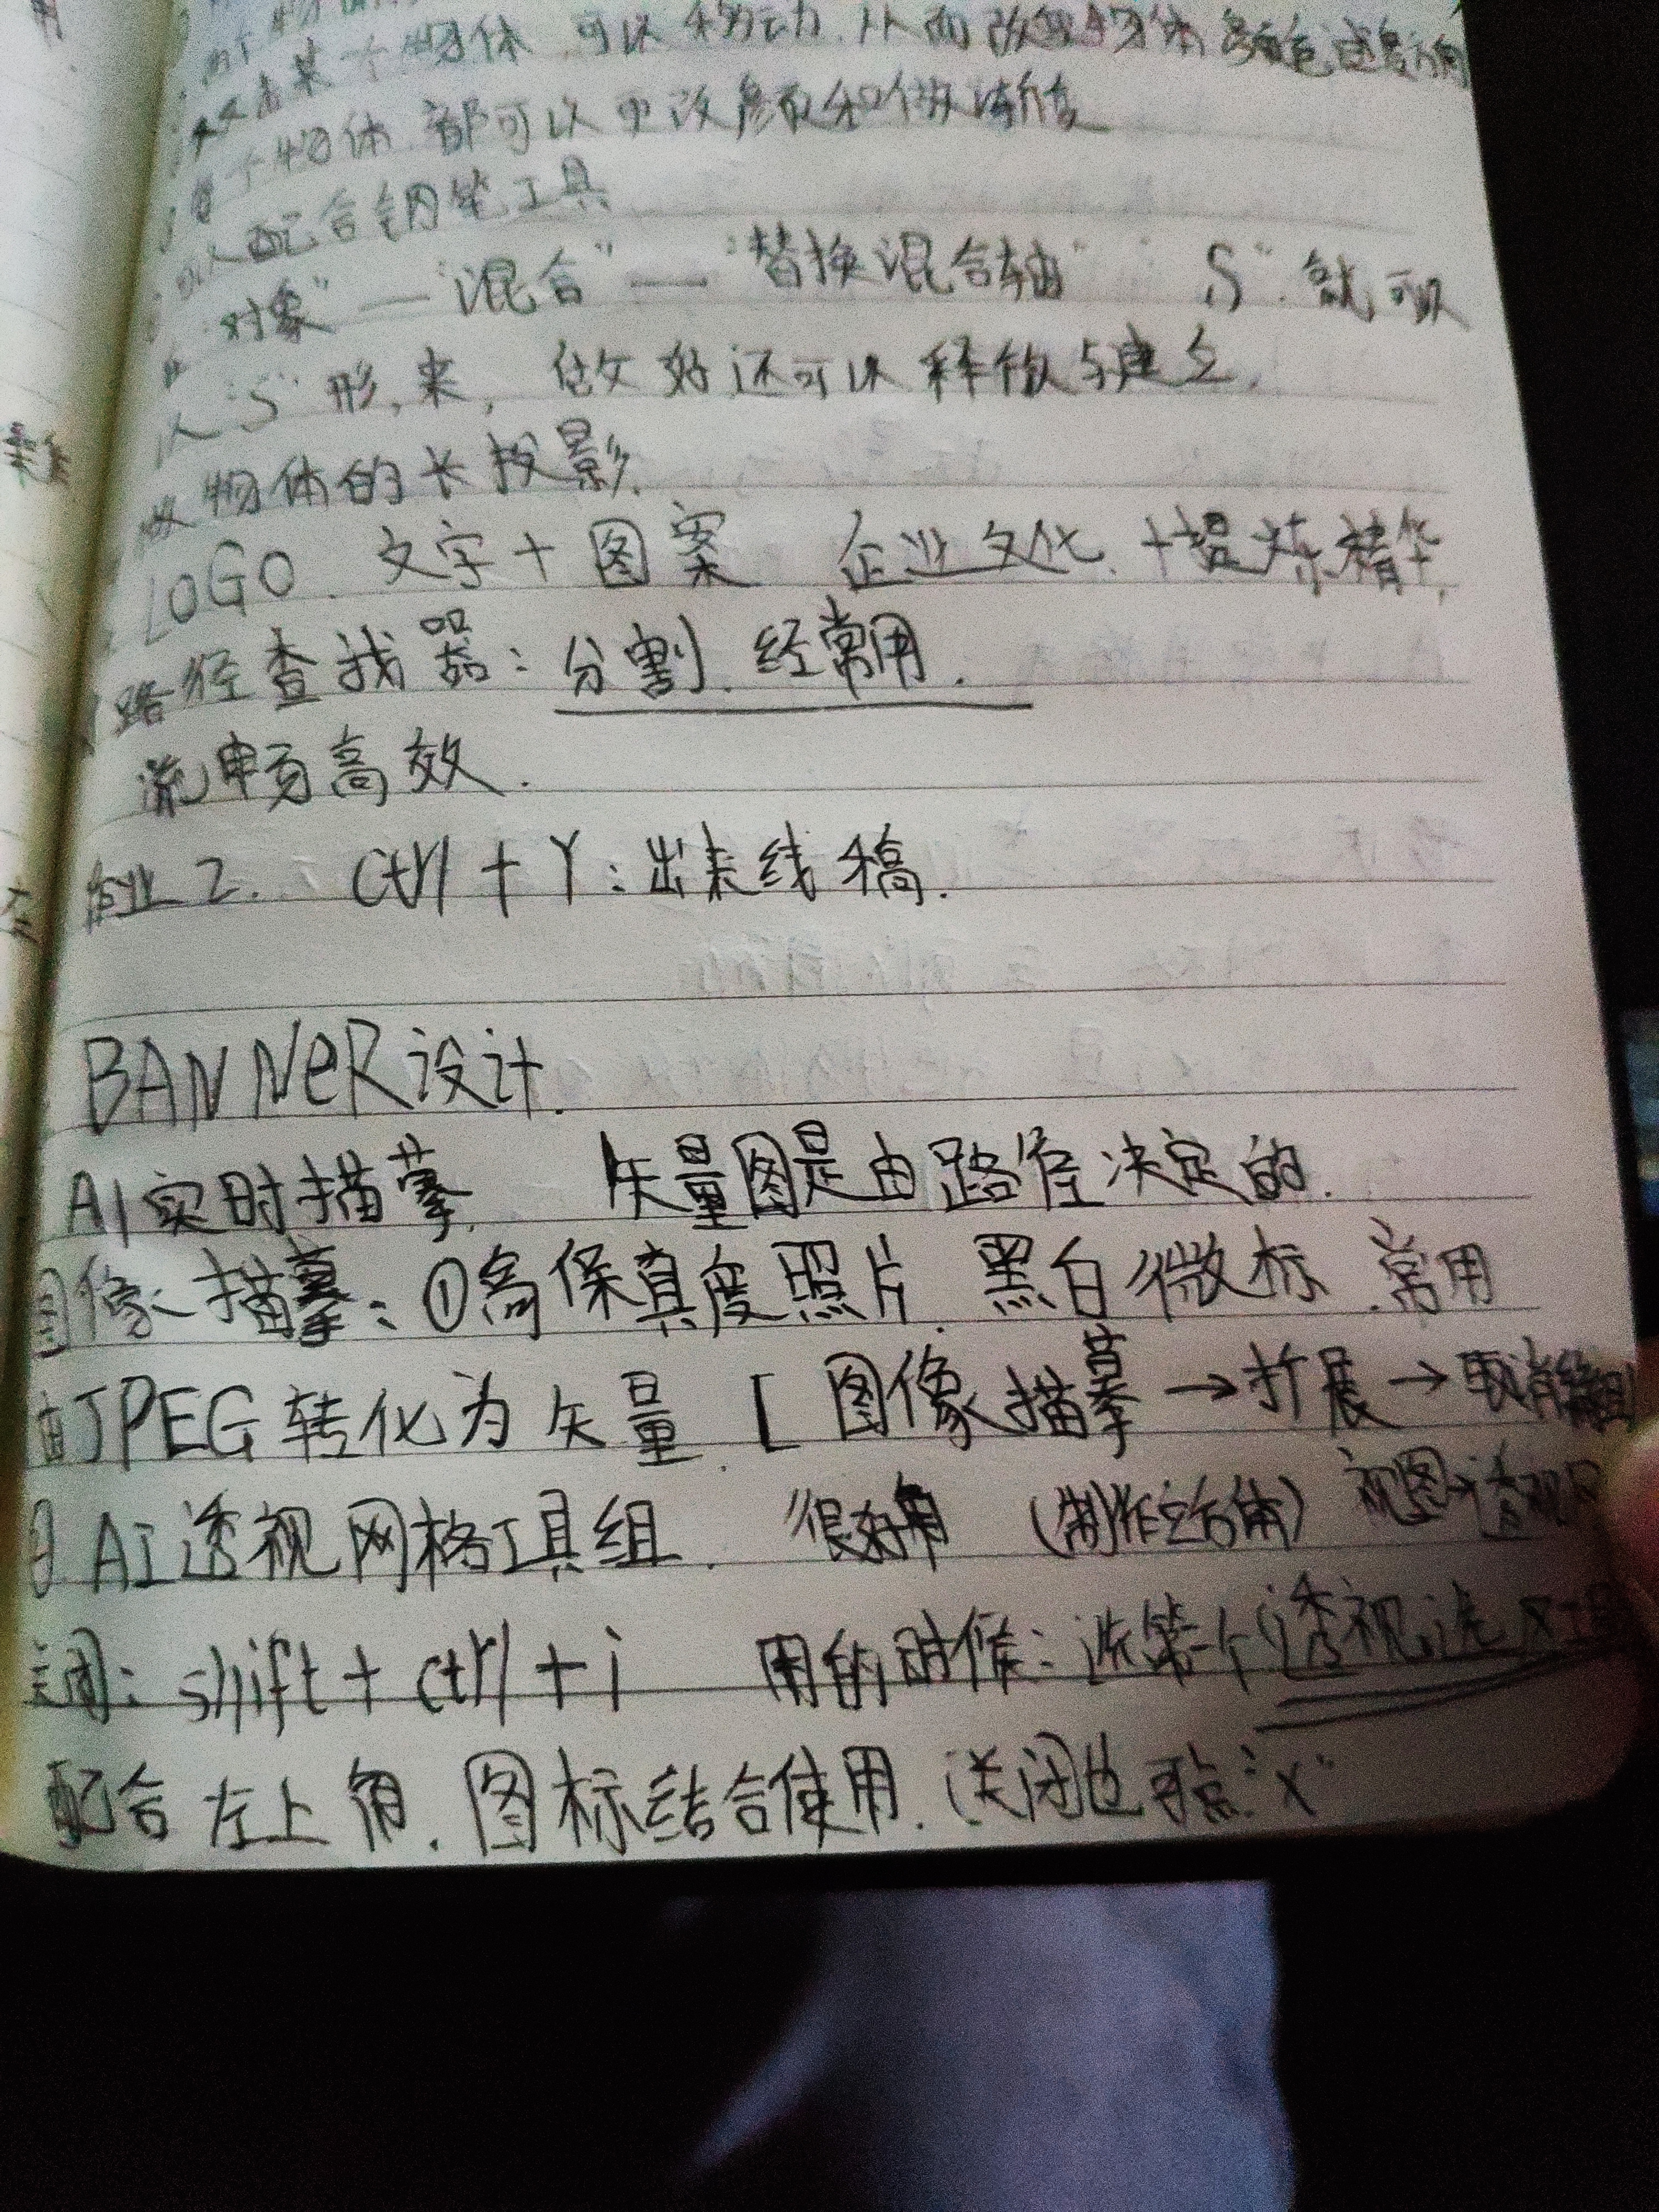 某个物体 可以移动.从而改变物体颜色或影响
个物体.都可以更改颜色和做渐变
配合钢笔工具
对象"—"混合"—"替换混合轴" S".就可以
以"S"形.来,做好还可以释放与建立.
做物体的长投影.
LOGO.文字+图案 企业文化.+提炼精华.
路径查找器:分割.经常用.
流畅高效.
作业2. Ctrl+Y:出来线稿.
BANNeR设计.
AI实时描摹. 矢量图是由路径决定的.
图像描摹:①高保真度照片.黑白徽标.常用
由JPEG转化为矢量.[图像描摹→扩展→取消编组
AI透视网格工具组. 很好用 (制作立方体) 视图→透视
关闭:shift+ctrl+i 用的时候:选第一个"透视选区
配合左上角.图标结合使用.(关闭也可点"x"